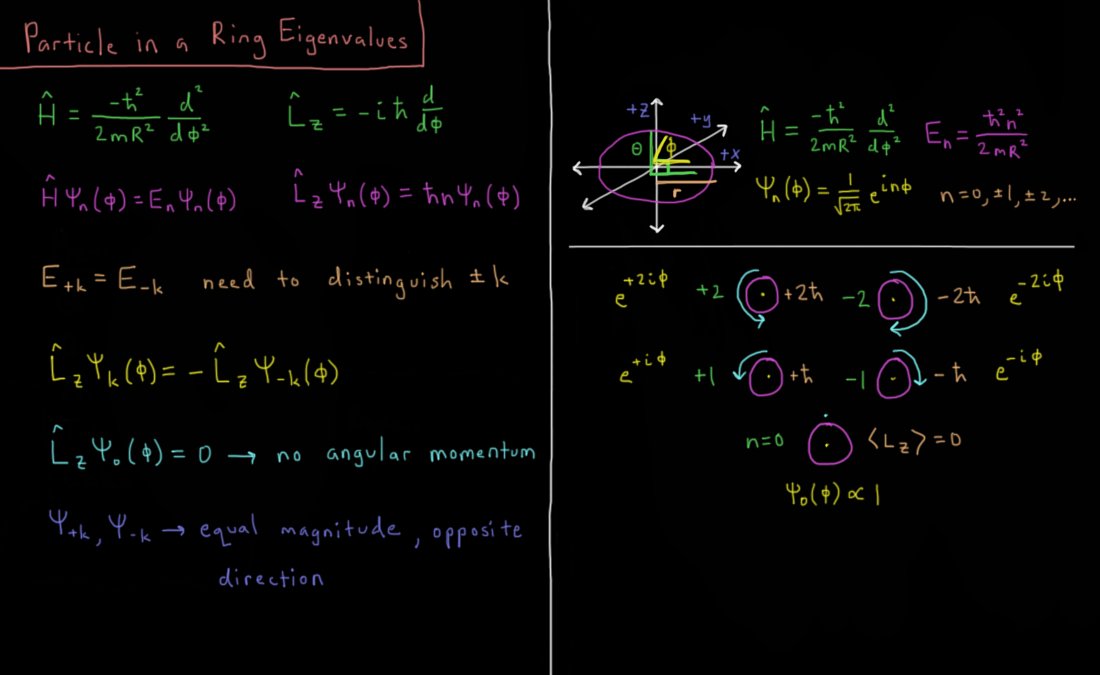 Particle in a Ring Eigenvalues
Ĥ = -ħ²/2mR² d²/dϕ²    L̂z = -iħ d/dϕ
ĤΨn(ϕ) = EnΨn(ϕ)    L̂zΨn(ϕ) = ħnΨn(ϕ)
E+k = E-k need to distinguish ±k
L̂zΨk(ϕ) = -L̂zΨ-k(ϕ)
L̂zΨ₀(ϕ) = 0 → no angular momentum
Ψ+k, Ψ-k → equal magnitude, opposite
direction
+z
+y
θ ϕ +x
r
Ĥ = -ħ²/2mR² d²/dϕ²    En = ħ²n²/2mR²
Ψn(ϕ) = 1/√2π e^inϕ    n=0,±1,±2,...
e^+2iϕ +2 +2ħ -2 -2ħ e^-2iϕ
e^+iϕ +1 +ħ -1 -ħ e^-iϕ
n=0 ⟨Lz⟩=0
Ψ₀(ϕ) ∝ 1